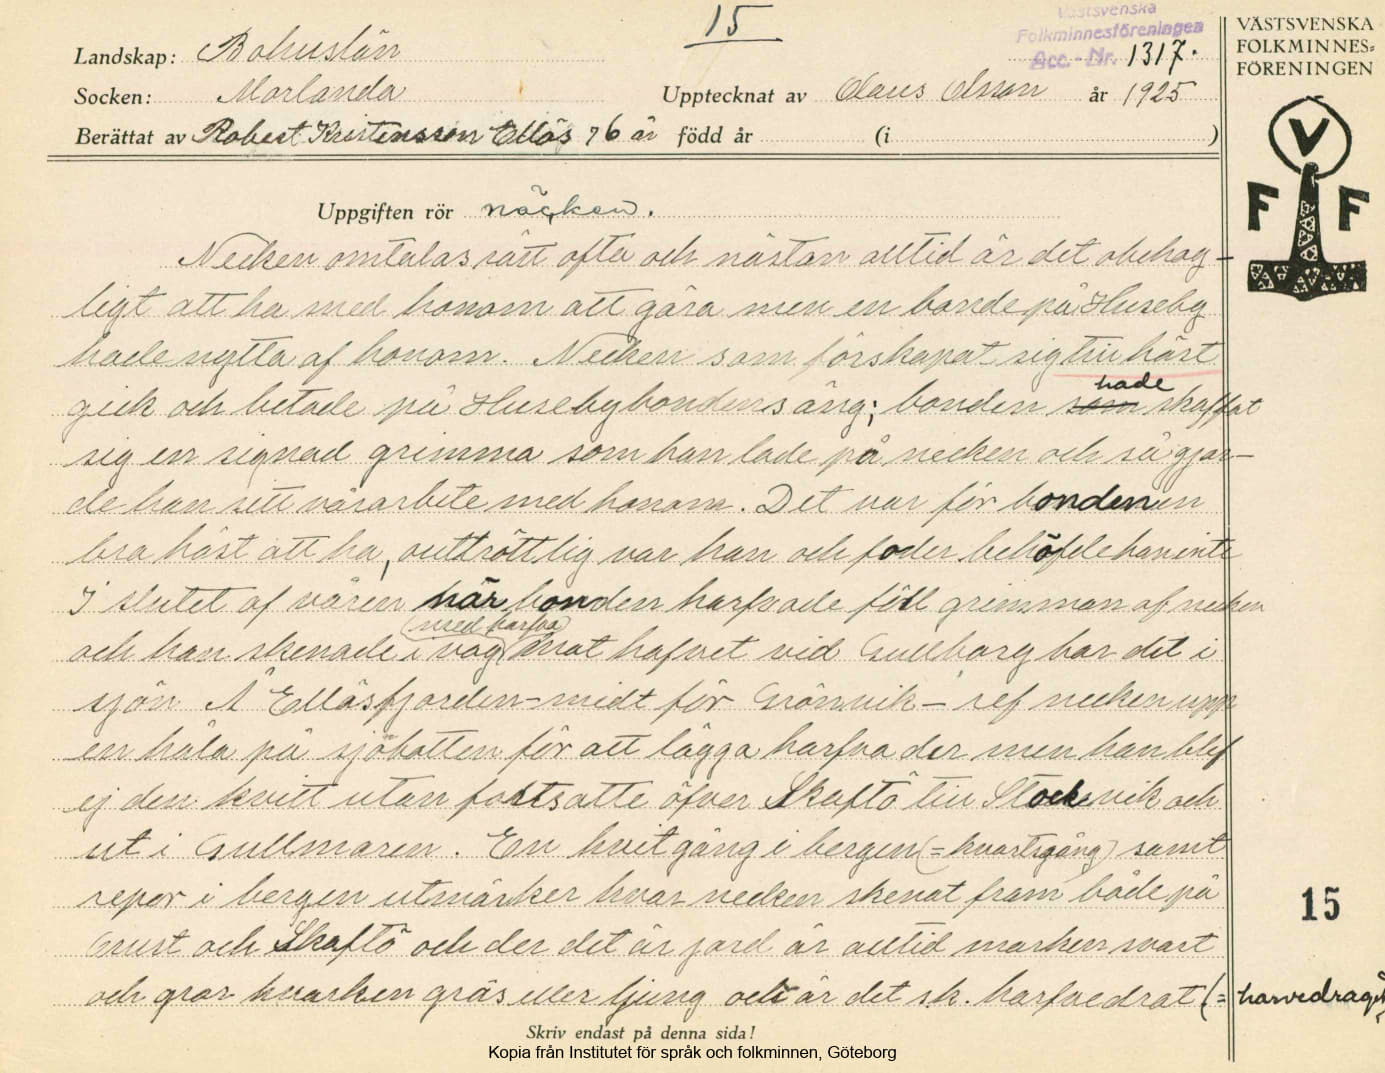 15
Västsvenska
Folkminnesföreningen
Acc.-Nr. 1317.
VÄSTSVENSKA
FOLKMINNES=
FÖRENINGEN
V
F F
Landskap: Bohuslän
Socken: Morlanda
Upptecknat av Claus Olsson år 1925
Berättat av Robert Kristensson Ellös 76 år född år (i )
Uppgiften rör näcken.
Necken omtalas rätt ofta och nästan alltid är det obehag-
ligt att ha med honom att göra men en bonde på Huseby
hade nytta af honom. Necken som förskapat sig till häst
gick och betade på Husebybondens äng; bonden som hade skaffat
sig en signad grimma som han lade på necken och så gjor-
de han sitt vårarbete med honom. Det var för bonden en
bra häst att ha, outtröttlig var han och foder behöfde han inte
I slutet af våren när bonden harfvade föll grimman af necken
och han skenade i väg (med harfva) mot hafvet vid Gullborg bar det i
sjön Å Ellösfjorden – midt för Grönvik – ref necken upp
en håla på sjöbotten för att lägga harfva der men han blef
ej den kvitt utan fortsatte öfver Skaftö till Stockevik och
ut i Gullmaren. En hvit gång i bergen (= kvartsgång) samt
repor i bergen utmärker hvar necken skenat fram både på
Orust och Skaftö och der det är jord är alltid marken svart
och gror hvarken gräs eller ljung och är det s.k. harfvedrat (= harvedraget)
15
Skriv endast på denna sida!
Kopia från Institutet för språk och folkminnen, Göteborg